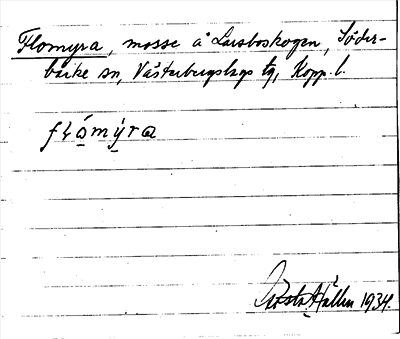 Flomyra, mosse å Larsboskogen, Söder-
bärke sn, Västerbergslags tg, Kopp. l.
flo̱mýra
Gösta Hallin 1934.